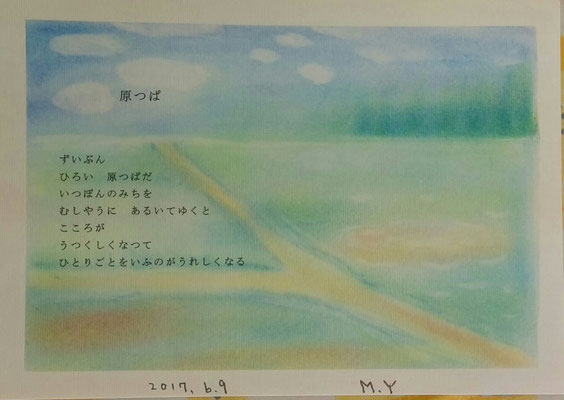 原つぱ
ずいぶん
ひろい　原つぱだ
いつぽんのみちを
むしやうに　あるいてゆくと
こころが
うつくしくなつて
ひとりごとをいふのがうれしくなる
2017.6.9　M.Y